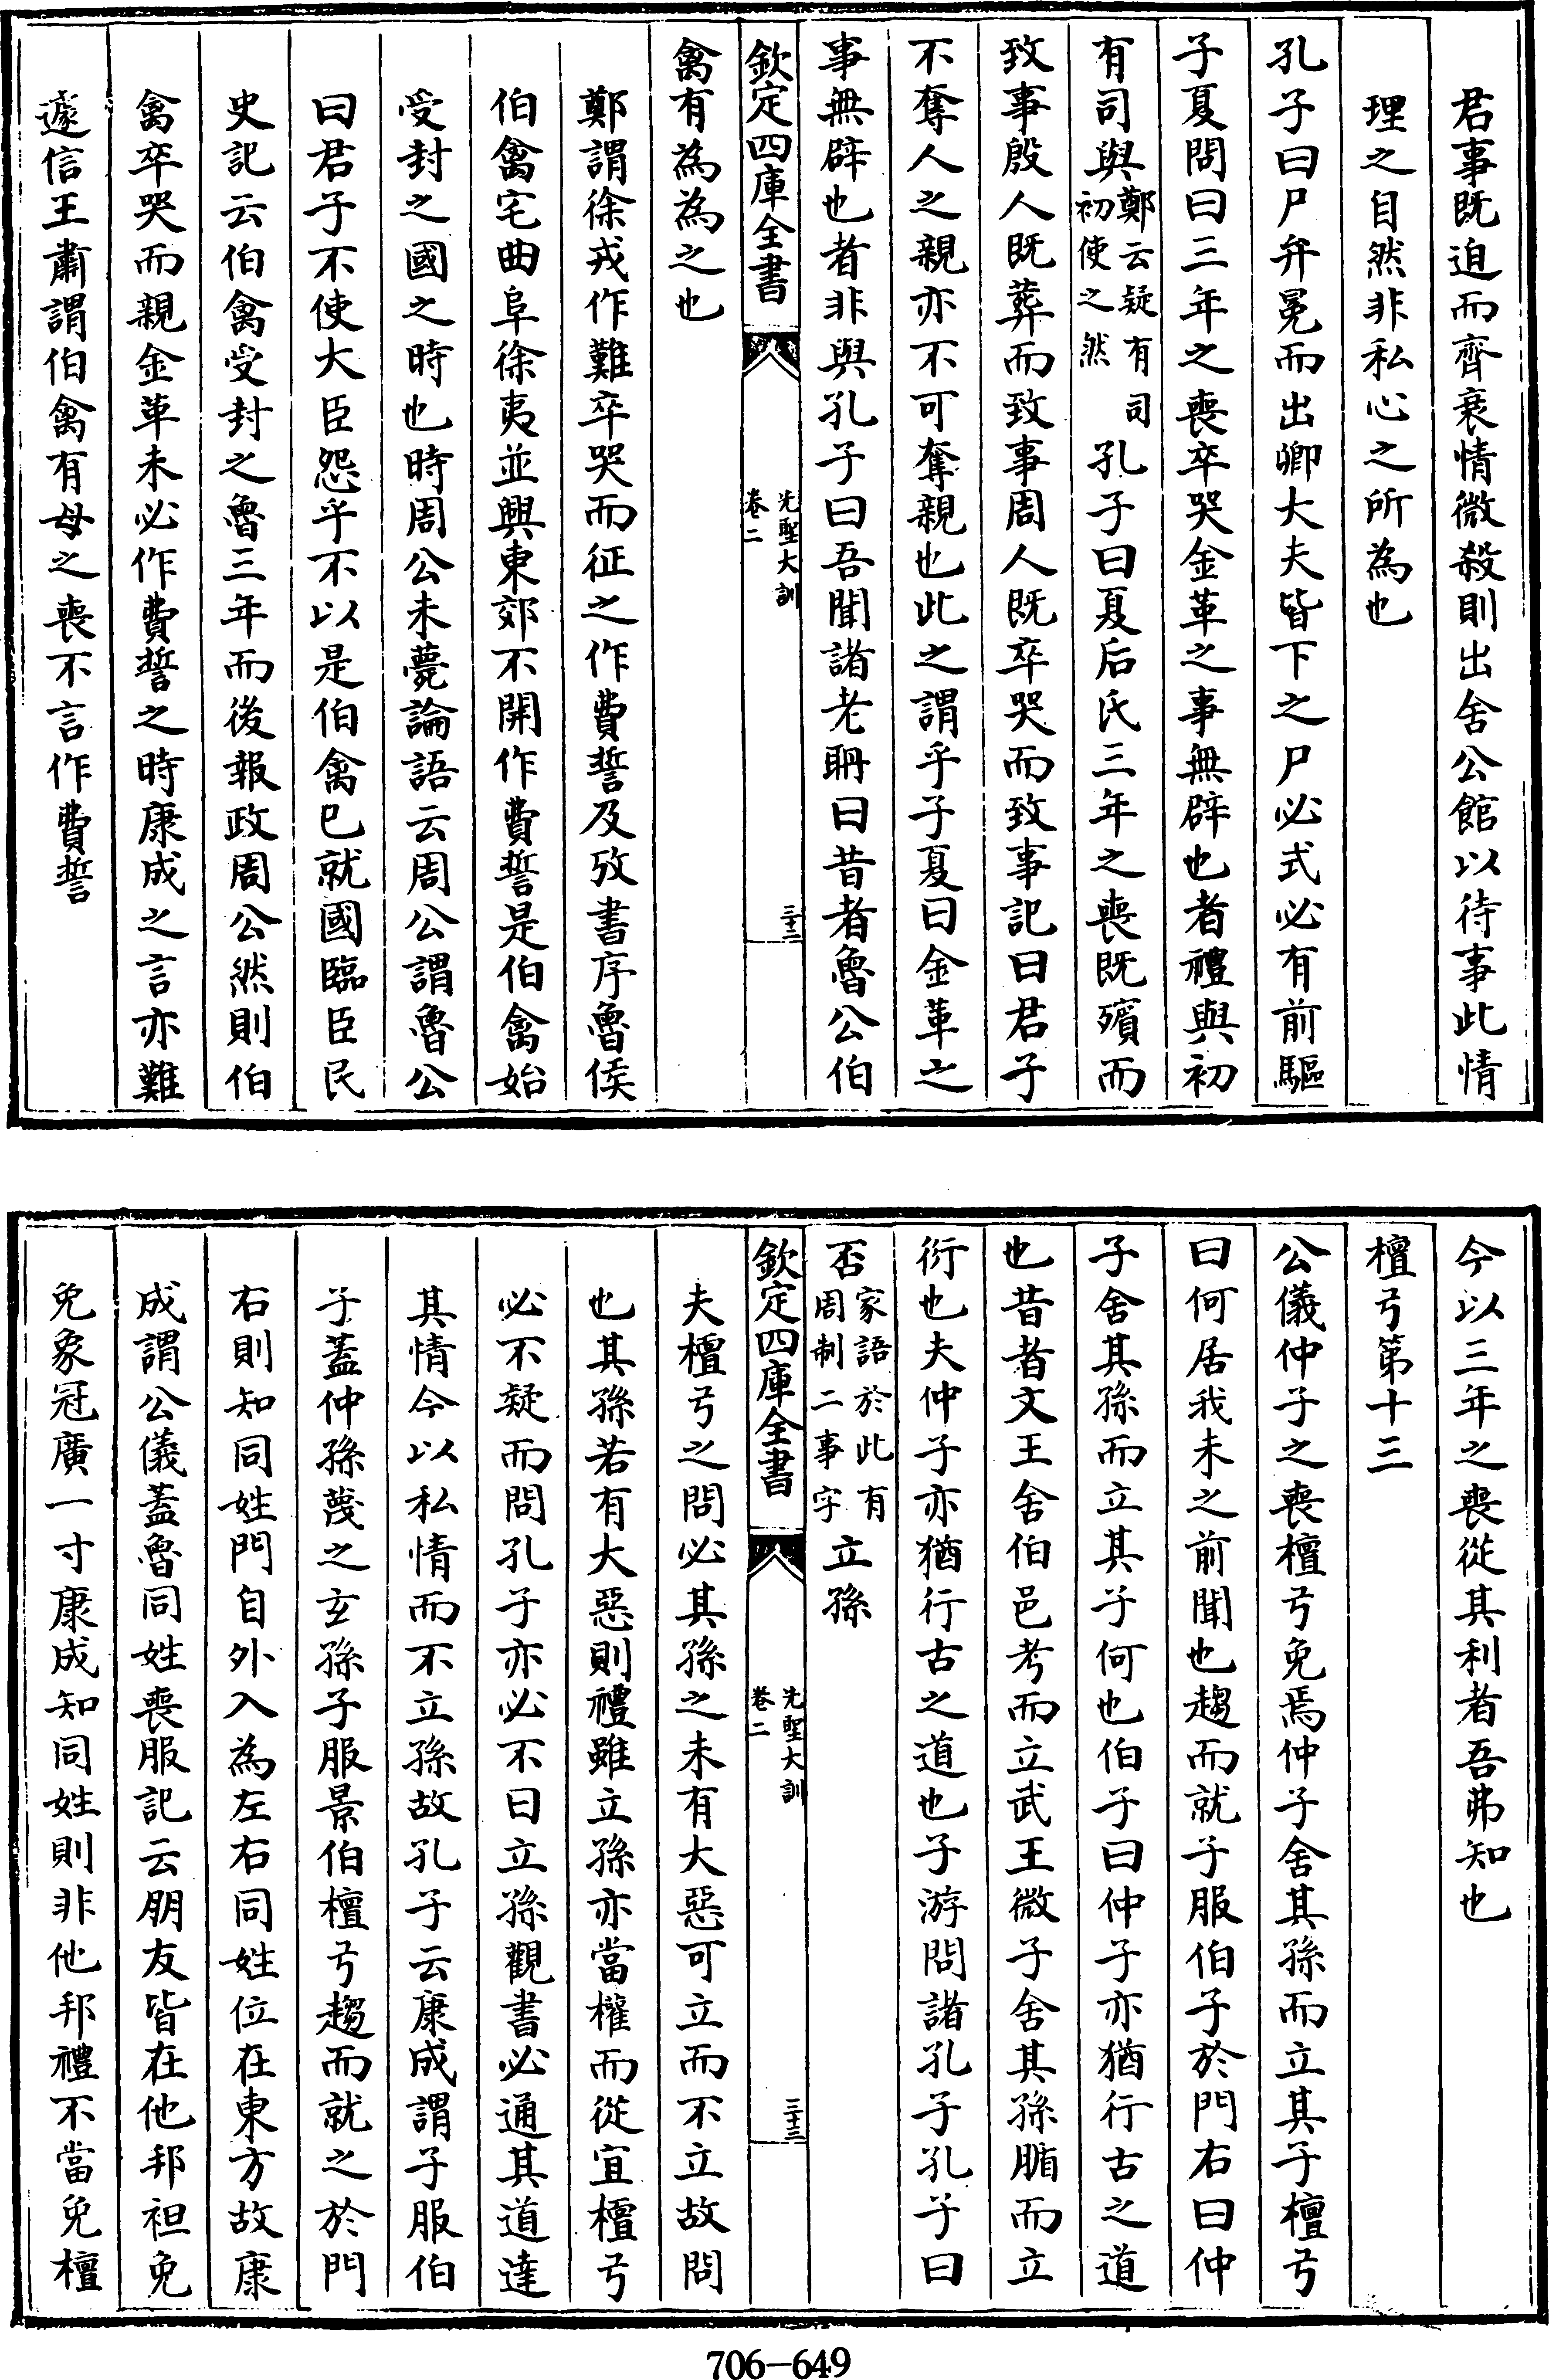 君事既迫而齊衰情微殺則出舍公館以待事此情
理之自然非私心之所為也
孔子曰尸弁冕而出卿大夫皆下之尸必式必有前驅
子夏問曰三年之喪卒哭金革之事無辟也者禮與初
有司與鄭云疑有司初使之然孔子曰夏后氏三年之喪既殯而
致事殷人既葬而致事周人既卒哭而致事記曰君子
不奪人之親亦不可奪親也此之謂乎子夏曰金革之
事無辟也者非與孔子曰吾聞諸老聃曰昔者魯公伯
欽定四庫全書 先聖大訓 卷二 三十二
禽有為為之也
鄭謂徐戎作難卒哭而征之作費誓及攷書序魯侯
伯禽宅曲阜徐夷並興東郊不開作費誓是伯禽始
受封之國之時也時周公未薨論語云周公謂魯公
曰君子不使大臣怨乎不以是伯禽已就國臨臣民
史記云伯禽受封之魯三年而後報政周公然則伯
禽卒哭而親金革未必作費誓之時康成之言亦難
遽信王肅謂伯禽有母之喪不言作費誓
今以三年之喪從其利者吾弗知也
檀弓第十三
公儀仲子之喪檀弓免焉仲子舍其孫而立其子檀弓
曰何居我未之前聞也趨而就子服伯子於門右曰仲
子舍其孫而立其子何也伯子曰仲子亦猶行古之道
也昔者文王舍伯邑考而立武王微子舍其孫腯而立
衍也夫仲子亦猶行古之道也子游問諸孔子孔子曰
否家語於此有周制二事字立孫
欽定四庫全書 先聖大訓 卷二 三十三
夫檀弓之問必其孫之未有大惡可立而不立故問
也其孫若有大惡則禮雖立孫亦當權而從宜檀弓
必不疑而問孔子亦必不曰立孫觀書必通其道達
其情今以私情而不立孫故孔子云康成謂子服伯
子蓋仲孫蔑之玄孫子服景伯檀弓趨而就之於門
右則知同姓門自外入為左右同姓位在東方故康
成謂公儀蓋魯同姓喪服記云朋友皆在他邦袒免
免象冠廣一寸康成知同姓則非他邦禮不當免檀
706-649